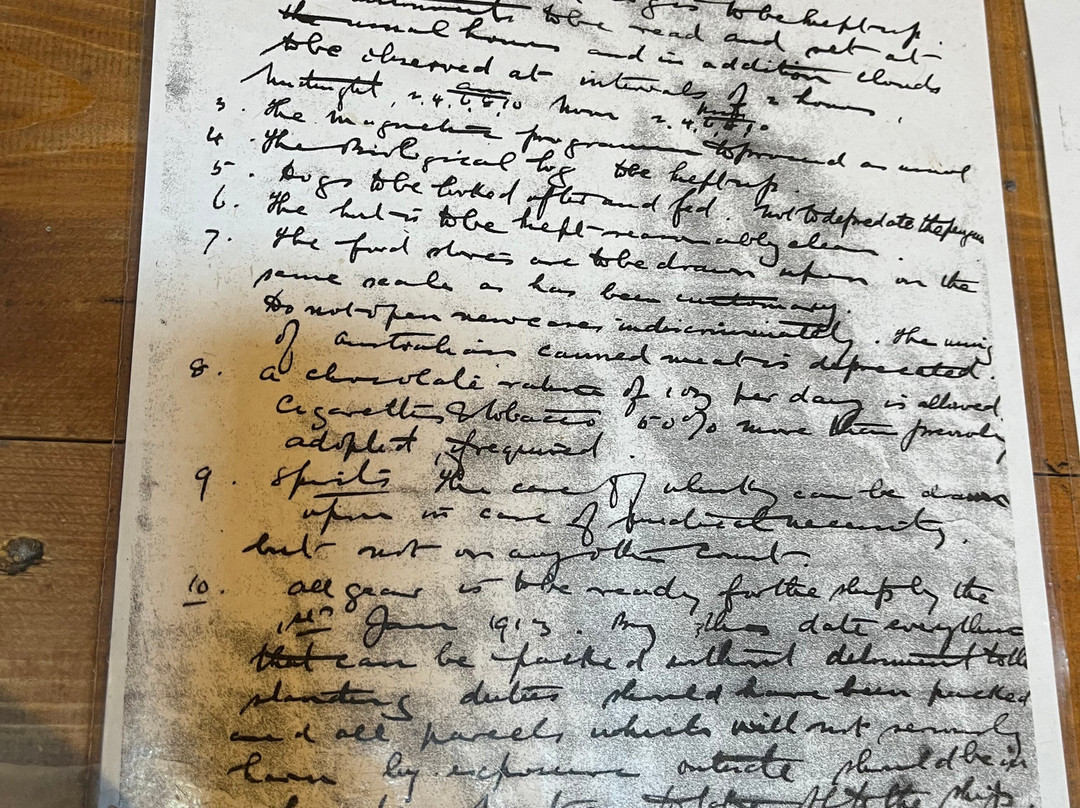 to be kept up.
to be read and set at
the usual hours and in addition clouds
to be observed at intervals of 2 hours,
Midnight, 2. 4. 6. 8. 10 Noon 2. 4. 6. 8. 10
3. The magnetic programme to proceed as usual
4. The Biological log to be kept up.
5. Dogs to be looked after and fed. Not to depredate the
6. The hut is to be kept reasonably clean
7. The food stores are to be drawn upon on the
same scale as has been customary.
Do not open new cases indiscriminately. The using
of Australian canned meat is deprecated.
8. A chocolate ration of 1 oz per day is allowed.
Cigarettes & tobacco 50% more than previously
adopted, if required.
9. Spirits The case of whisky can be drawn
upon in case of medical necessity.
but not on any other count.
10. All gear is to be ready for the ship by the
Jan 1913. By this date everything
that can be packed without detriment to the
standing duties should have been packed
and all parcels which will not seriously
harm by exposure outside should be in